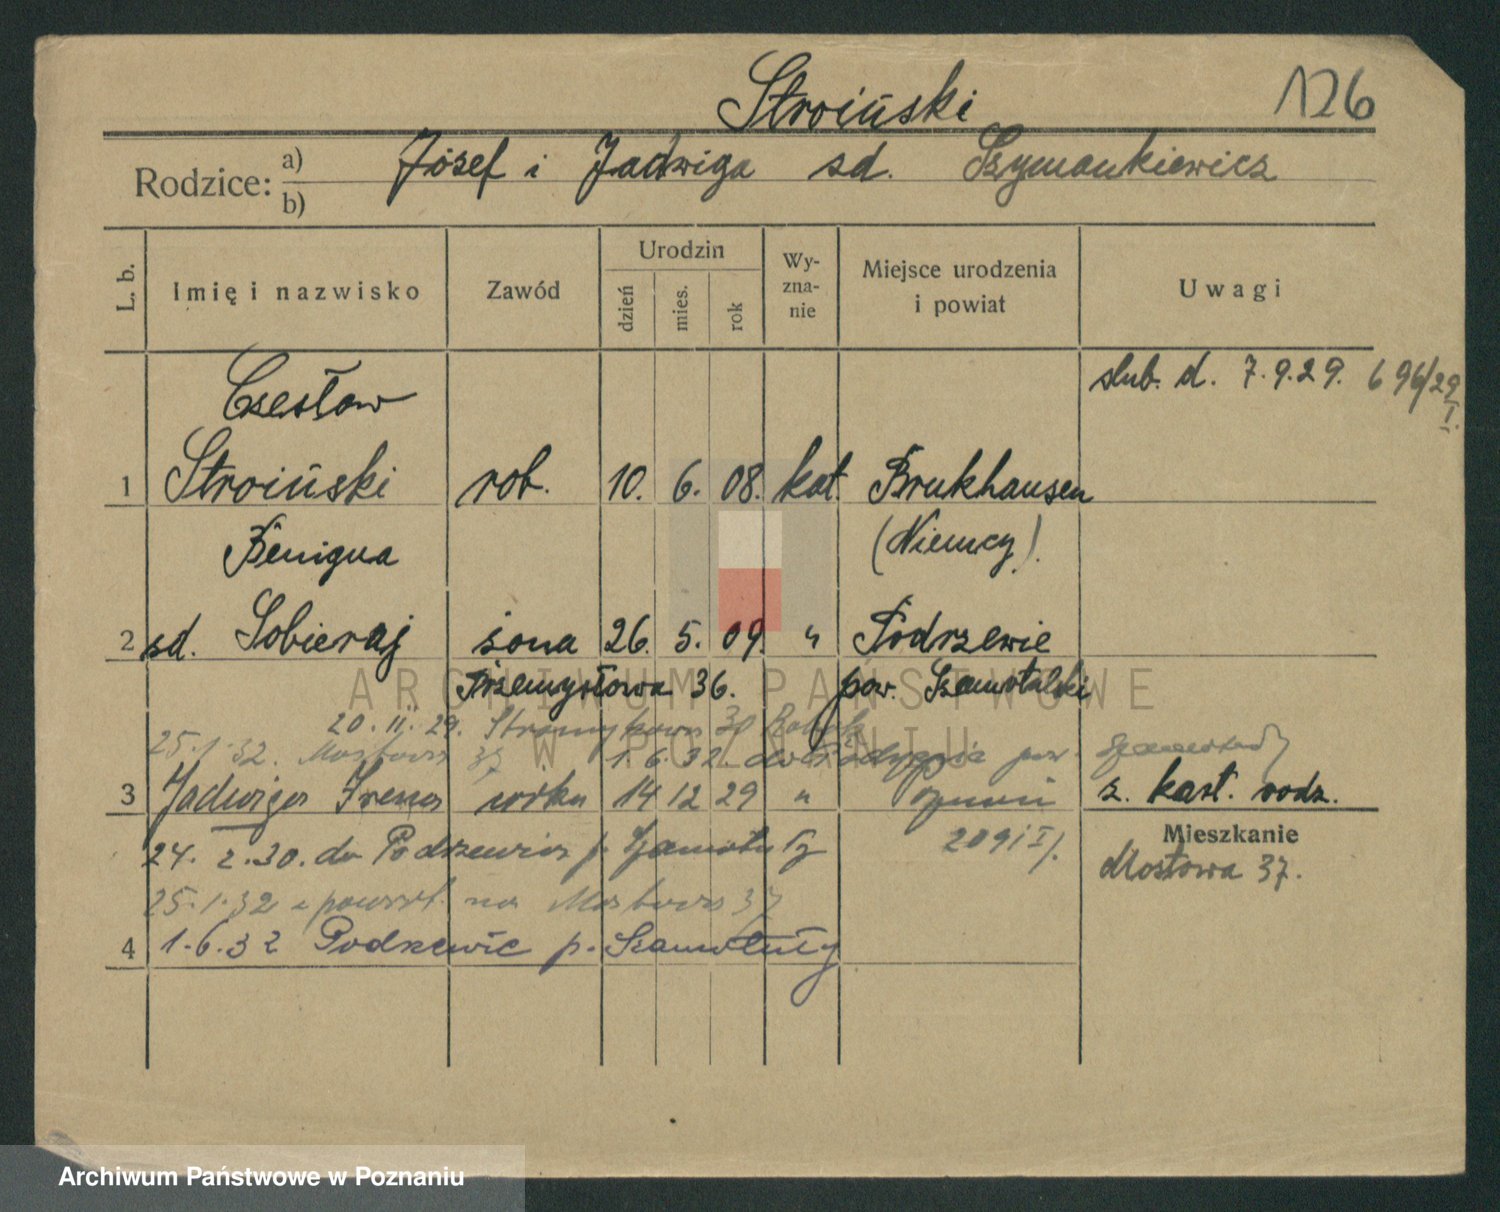 126
Stroiński
Rodzice: a) b)
Józef i Jadwiga zd. Szymankiewicz
L. b.
Imię i nazwisko
Zawód
Urodzin
dzień
mies.
rok
Wy-
zna-
nie
Miejsce urodzenia
i powiat
Uwagi
ślub. d. 7.9.29. 696/29
I.
Czesław
1 Stroiński rob. 10. 6. 08. kat. Brukhausen
(Niemcy).
Benigna
2 zd. Sobieraj żona 26. 5. 09. " Podrzewie
Przemysłowa 36. pow. Szamotulski
20.11.29. 30
25.1.32. Mostowa 37 1.6.32. do pow.
3 Jadwiga Irena córka 14 12 29 " Poznań z. kart. rodz.
24. 2. 30. do Podrzewia p. Szamotuły 209
Mieszkanie
Mostowa 37.
25.1.32 z powrot. na Mostowa 37
4 1.6.32 Podrzewie p. Szamotuły
ARCHIWUM PAŃSTWOWE
W POZNANIU
Archiwum Państwowe w Poznaniu